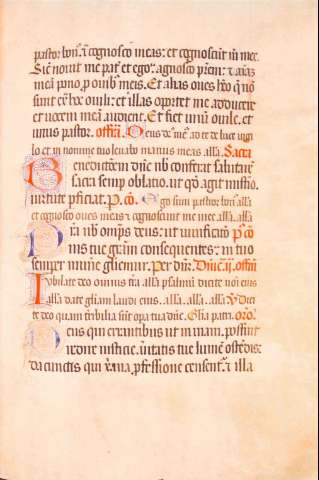 pastor bon᷒. ⁊ cognosco meas: et cognoscūt me mee.
Sic̄ nouit me pat̄ et ego agnosco pr̄em: ⁊ aīaz
meā pono p̄ ouib᷒ meis. Et alias oues hēo q̄ nō
sunt ex hoc ouili: et illas oportet me adducere
et uocem meā audient. Et fiet unū ouile. et
unus pastor. offm̄. Deus de᷒ me᷒ ad te de luce uigi
lo et in nomine tuo leuabo manus meas. alła. Sacra
Benedictōem dn̄e nb̄ conferat salutarē
sacra semp oblatio. ut qd̄ agit misterio
uirtute pficiat. P. cō. Ego sum pastor bon᷒ alła
et cognosco oues meas ⁊ cognoscunt me mee. alła. alła
Pta nb̄ omp̄s deus: ut uiuificatōis P᷒ cō
nis tue gr̄am consequentes: in tuo
semper munere gliemur. Per dn̄m. Dn̄ica .ij. offm̄
Iubilate deo omnis tr̄a alła psalmū dicite noī eius
alła date gliam laudi eius. alła. alła. alła. V̄ Dici
te deo quam tribilia sūt opa tua dn̄e. Glia patri. orō.
Deus qui errantibus ut in uiam possint
redire iusticie. ueritatis tue lumē ostēdis:
da cunctis qui xp̄iana p̄fessione censent᷒. ⁊ illa